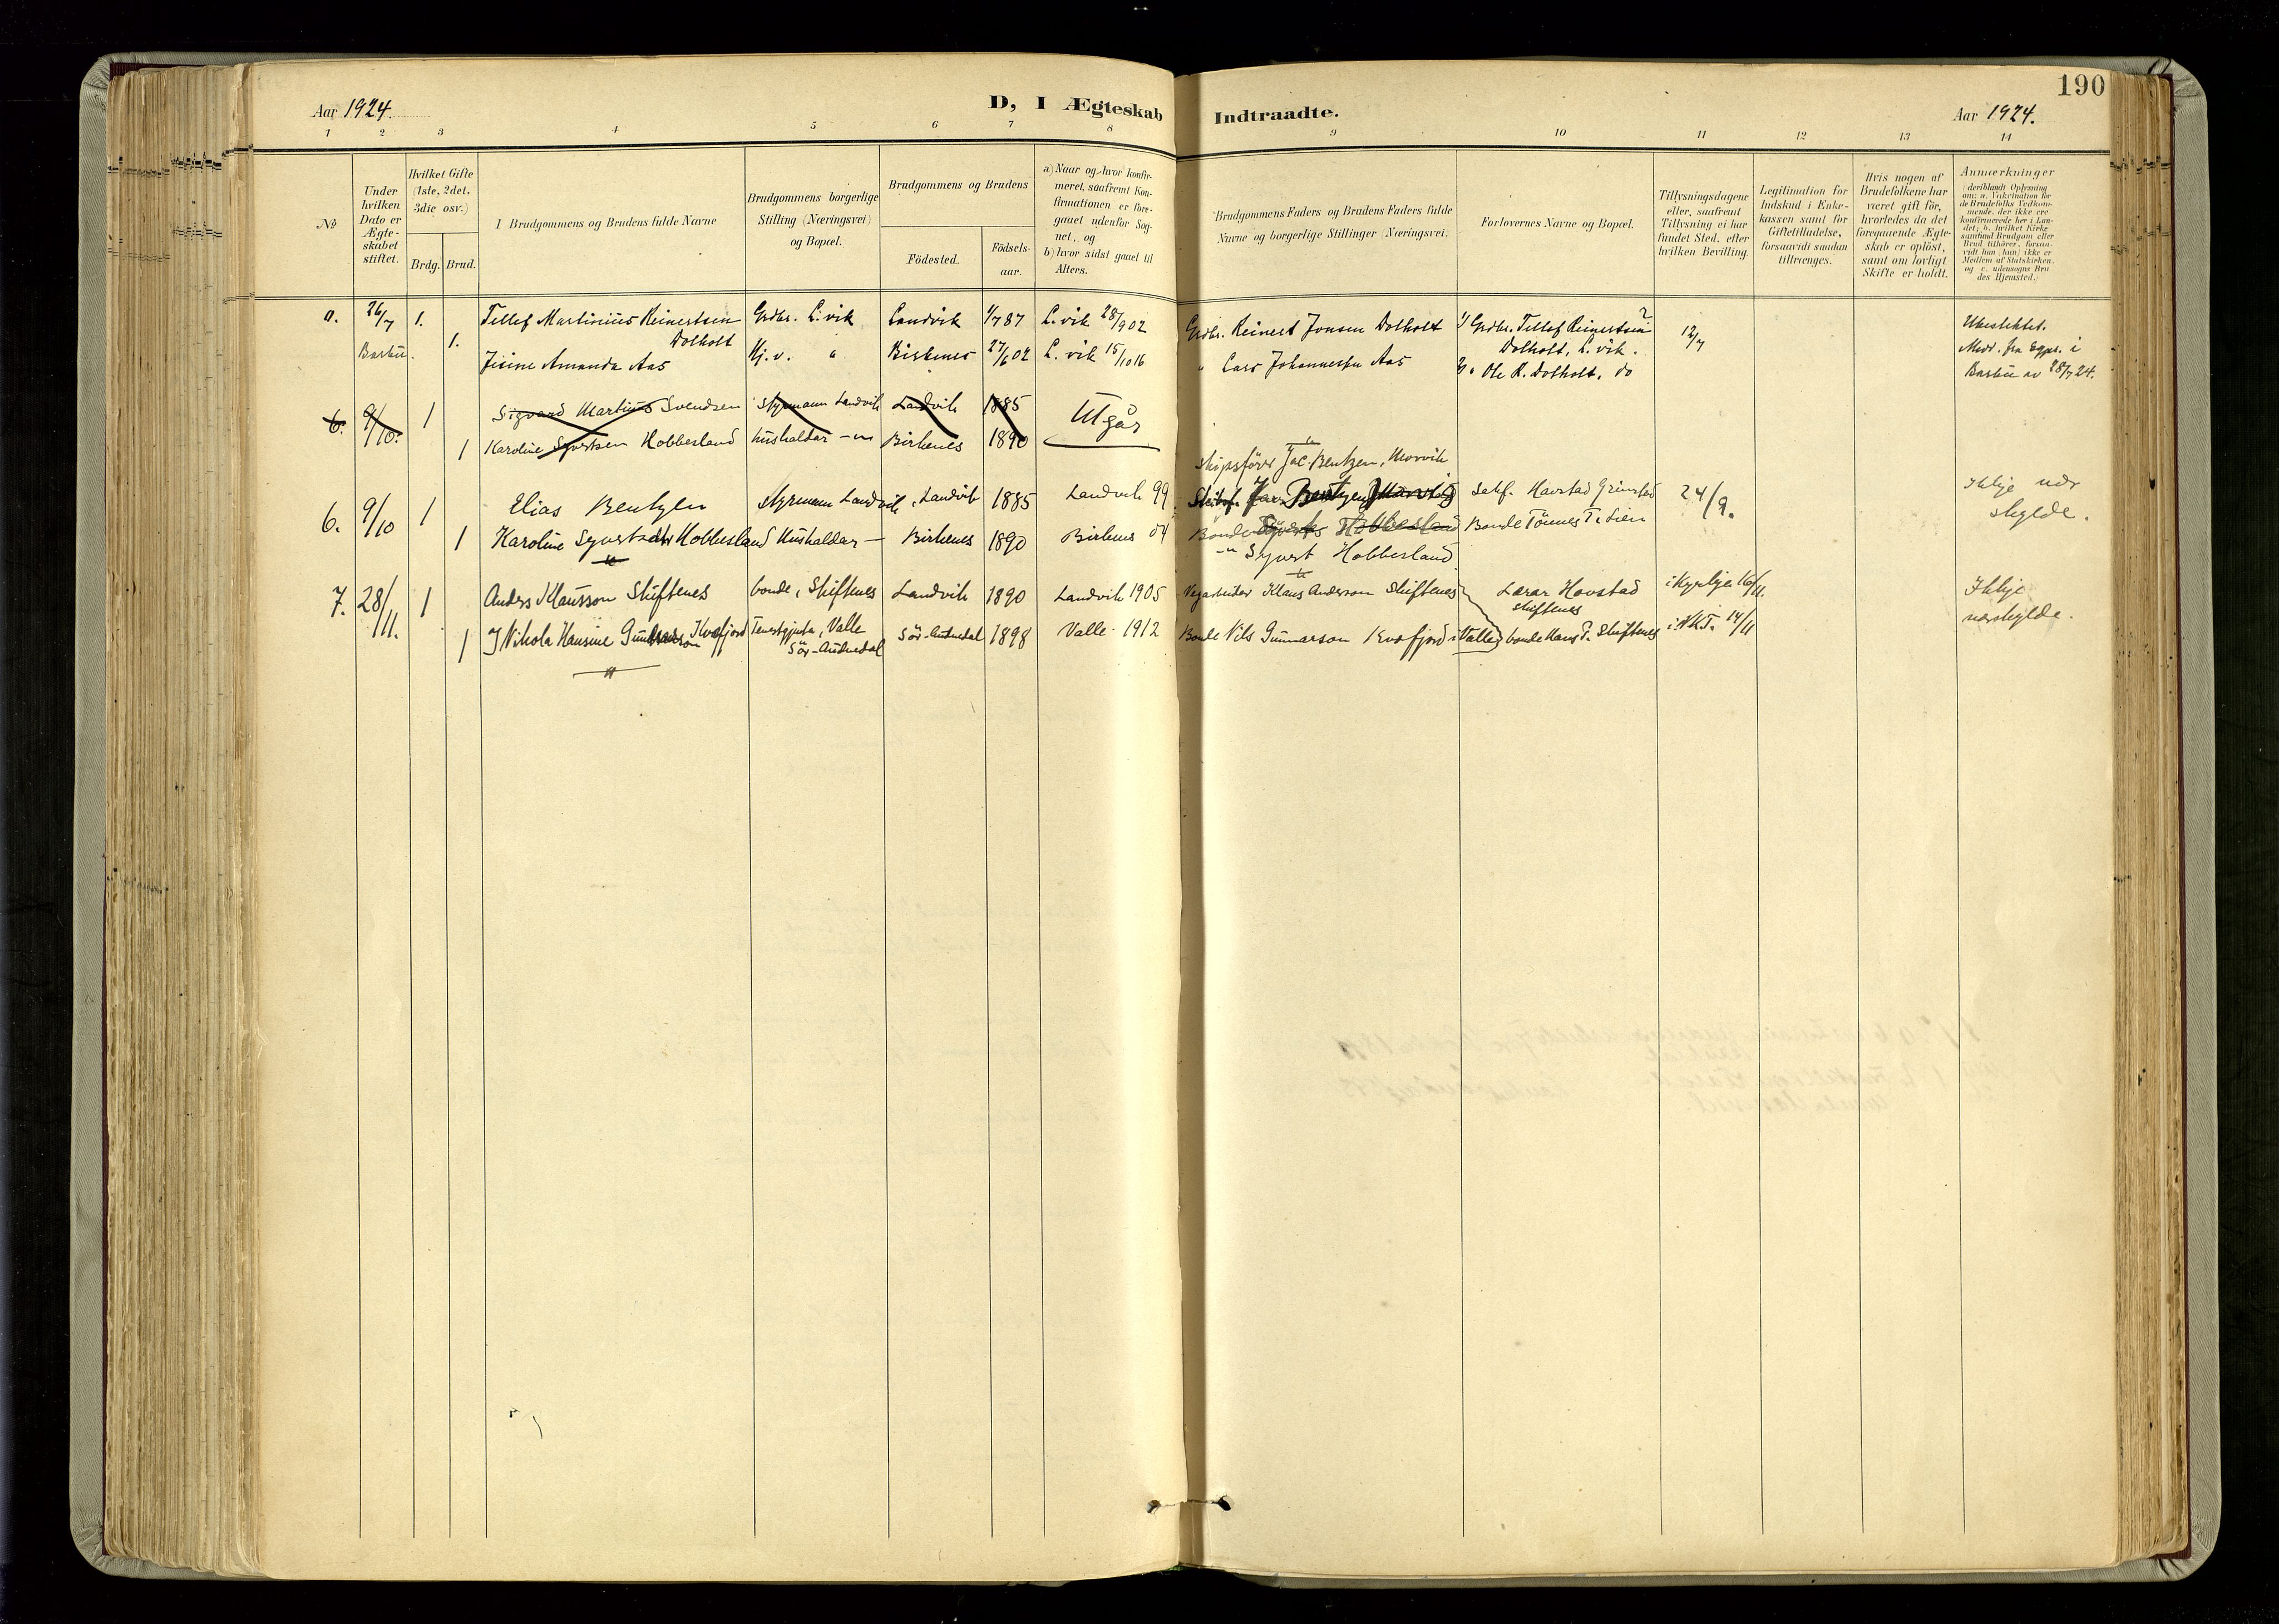 190
Aar 1924.
D, I Ægteskab
Indtraadte.
Aar 1924.
1 2 3 4 5 6 7 8 9 10 11 12 13 14
No
Under hvilken Dato er Ægte-skabet stiftet.
Hvilket Gifte (1ste, 2det, 3die osv.)
Brdg. Brud.
I Brudgommens og Brudens fulde Navne
Brudgommens borgerlige Stilling (Næringsvei) og Bopæl.
Brudgommens og Brudens
Födested.
Födsels-aar.
a) Naar og hvor konfir-meret, saafremt Kon-firmationen er fore-gaaet udenfor Sog-net, og
b) hvor sidst gaaet til Alters.
Brudgommens Faders og Brudens Faders fulde Navne og borgerlige Stillinger (Næringsvei).
Forlovernes Navne og Bopæl.
Tillysningsdagene eller, saafremt Tillysning ei har fundet Sted, efter hvilken Bevilling.
Legitimation for Indskud i Enke-kassen samt for Giftetilladelse, forsaavidt saadan tiltrænges.
Hvis nogen af Brudefolkene har været gift för, hvorledes da det foregaaende Ægte-skab er oplöst, samt om lovligt Skifte er holdt.
Anmærkninger
(deriblandt Oplysning om: a. Vakcination for de Brudefolks Vedkom-mende, der ikke ere konfirmerede her i Lan-det; b. hvilket Kirke-samfund Brudgom eller Brud tilhörer, forsaa-vidt han (hun) ikke er Medlem af Statskirken, og c. udensogns Bru-des Hjemsted.)
a. 26/7 1. Tellef Martinius Reinertsen Grdbr. L.vik Landvik 1/7 87 L.vik 28/9 02 Grdbr. Reinert Jonsen Dolholt 1/ Grdbr. Tellef Reinertsen ? 12/7 Ubeslektet.
Barbu. 1. Dolholt Dolholt, L.vik. Medd. fra Sgpr. i
Jisine Amanda Aas Hj.v. " Birkenes 27/6 02 L.vik 15/10 16 " Lars Johannesen Aas 2/ " Ole R. Dolholt. do Barbu av 28/7 24.
6. 9/10. 1 Sigvard Martius Svendsen Styrmann Landvik Landvik 1885 Utgår
1 Karoline Syvertsen Hobbesland Hushaldar -"- Birkenes 1890
Skipsförar Jac. Bentzen, Morvik
6. 9/10 1 Elias Bentzen Styrmann Landvik, Landvik 1885 Landvik 99 Havstad Grimstad 24/9. Ikkje nær skylde.
1 Karoline Syvertsdtr Hobbesland Hushaldar — Birkenes 1890 Birkenes 04 Bonde Bonde Tönnes T. Lien
-"- Syvert Hobbesland
7. 28/11. 1 Anders Klausson Skiftenes bonde, Skiftenes Landvik 1890 Landvik 1905 Vegarbeider Klaus Anderson Skiftenes Lærar Hovstad Skiftenes i Kyrkja 16/11. Ikkje nærskylde.
1 Nikola Hansine Kvafjord Tenestgjenta, Valle Sör-Audnedal Sör-Audnedal 1898 Valle 1912 Bonde Nils Gunnarson Kvafjord i Valle bonde Hans T. Skiftenes i N.K.T. 14/11